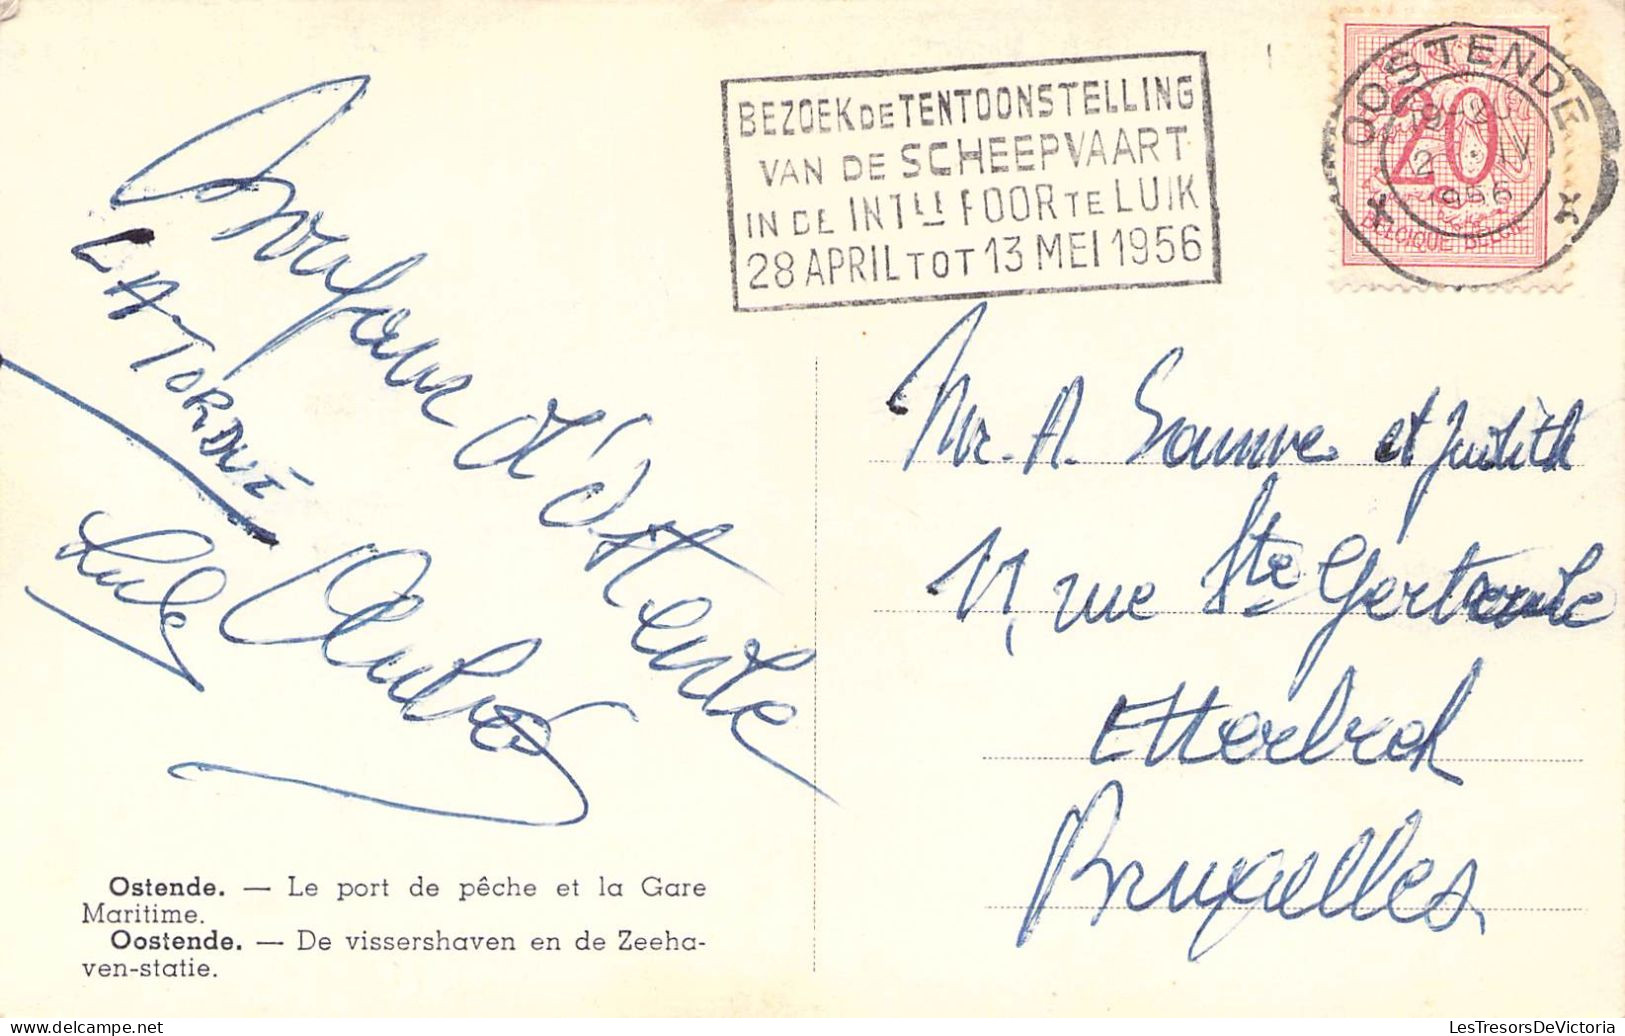 BEZOEK DE TENTOONSTELLING
VAN DE SCHEEPVAART
IN DE INTLE FOOR TE LUIK
28 APRIL TOT 13 MEI 1956
OOSTENDE
20
BELGIQUE BELGIE
Bonjour d'Ostende
LA TORDUE
Mr. A. et Judith
11, rue Ste Gertrude
Etterbeek
Bruxelles
Ostende. — Le port de pêche et la Gare
Maritime.
Oostende. — De vissershaven en de Zeeha-
ven-statie.
delcampe.net
LesTresorsDeVictoria